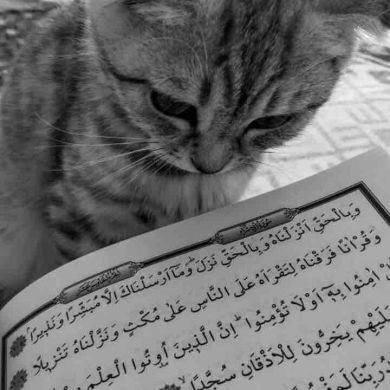 وَبِالْحَقِّ اَنْزَلْنَاهُ وَبِالْحَقِّ نَزَلَ وَمَٓا اَرْسَلْنَاكَ اِلَّا مُبَشِّرًا وَنَذِيرًا
وَقُرْاٰنًا فَرَقْنَاهُ لِتَقْرَاَهُ عَلَى النَّاسِ عَلٰى مُكْثٍ وَنَزَّلْنَاهُ تَنْزِيلًا
اٰمِنُوا بِهِٓ اَوْ لَا تُؤْمِنُوا اِنَّ الَّذِينَ اُوتُوا الْعِلْمَ
عَلَيْهِمْ يَخِرُّونَ لِلْاَذْقَانِ سُجَّدًا
رَبِّنَا